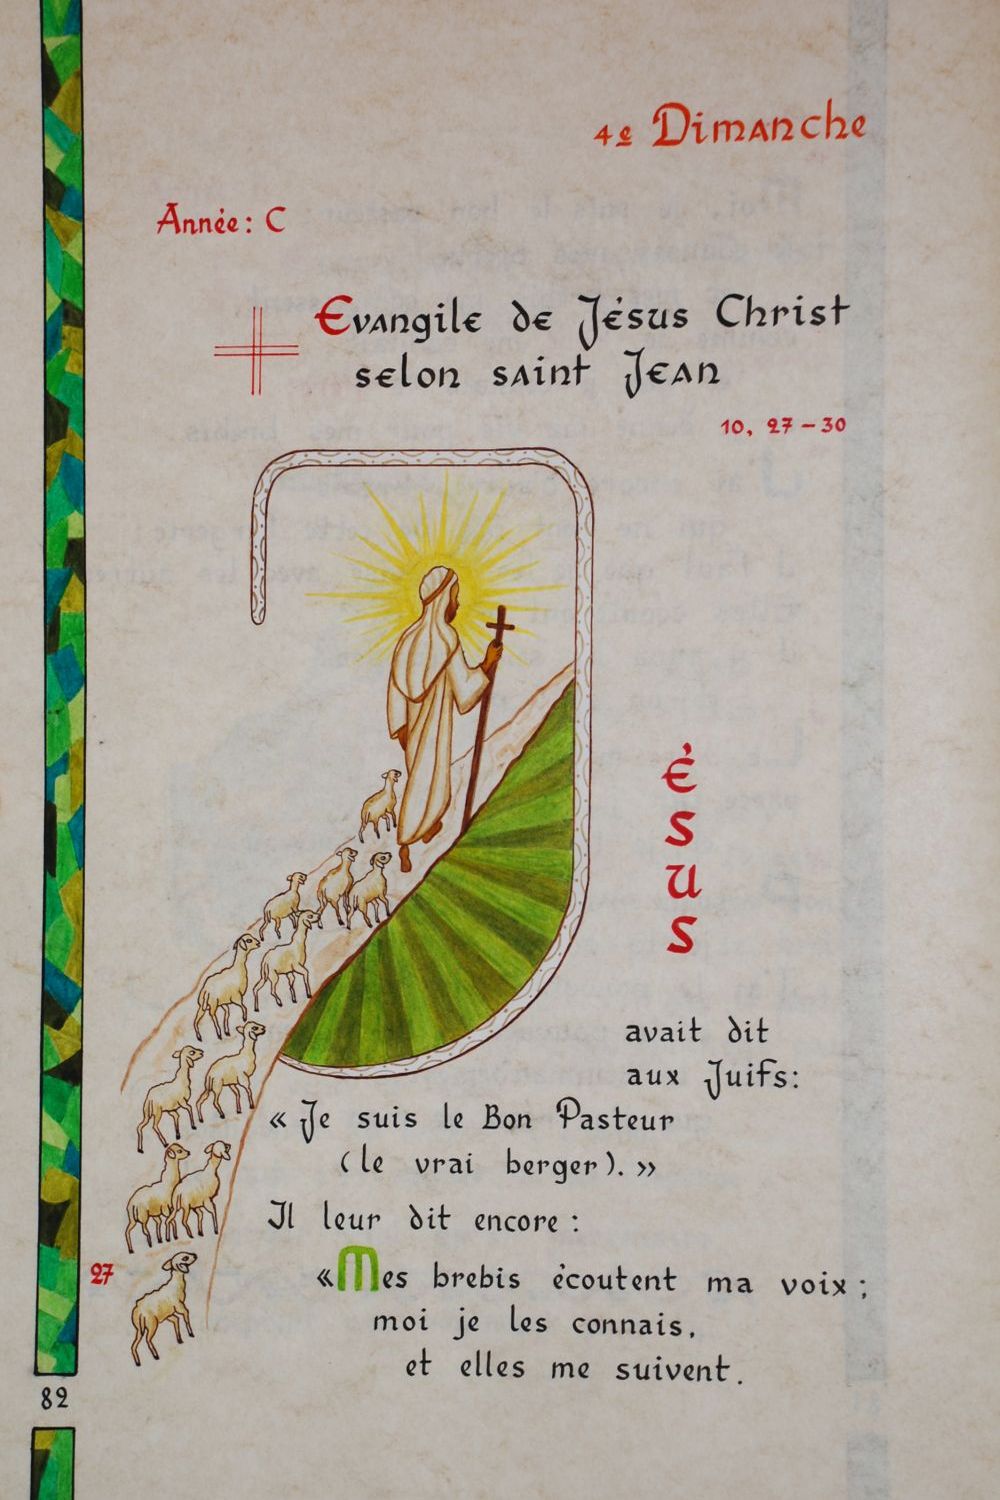 4e Dimanche
Année: C
Evangile de Jésus Christ
selon saint Jean
10, 27-30
JÉSUS
avait dit
aux Juifs:
« Je suis le Bon Pasteur
(le vrai berger). »
Il leur dit encore :
27 «Mes brebis écoutent ma voix ;
moi je les connais,
et elles me suivent.
82